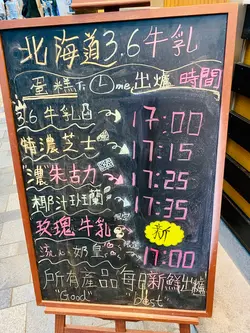 北海道3.6牛乳
蛋糕Ti Ⓛ me出爐時間
3.6牛乳 17:00
特濃芝士 17:15
"濃"朱古力 17:25
椰汁班蘭 限定 17:35
玫瑰牛乳 限定 新
流心奶皇 17:00
所有產品每日新鮮出爐
"Good" best"